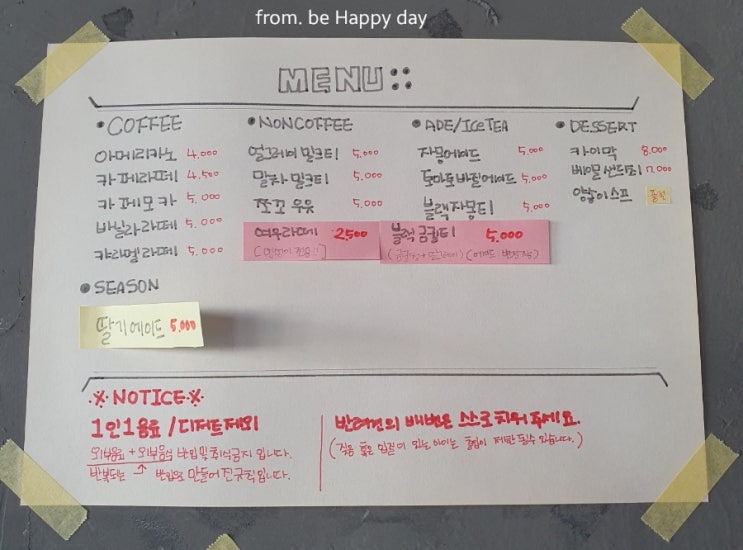 from. be Happy day
MENU
• COFFEE
아메리카노 4.000
카페라떼 4.500
카페모카 5.000
바닐라라떼 5.000
캬라멜라떼 5.000
• NONCOFFEE
얼그레이 밀크티 5.000
말차 밀크티 5.000
쪼꼬 우유 5.000
여우라떼 2.500
• ADE/ICETEA
자몽에이드 5.000
토마토바질에이드 5.000
블랙자몽티 5.000
블랙 금귤티 5.000
• DESSERT
카이막 8.000
베이글샌드위치 7.000
양송이스프 품절
• SEASON
딸기에이드 5.000
※ NOTICE ※
1인1음료 / 디저트제외
외부음료 + 외부음식 반입및취식금지 입니다.
반복되는 반입으로 만들어진 규칙입니다.
반려견의 배변은 스스로 치워 주세요.